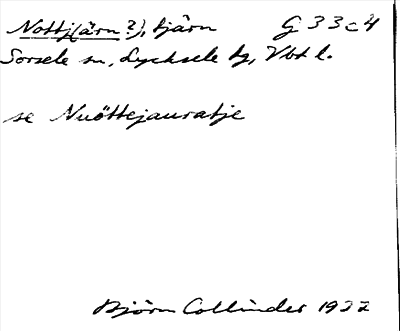 Nottj(ärn?), tjärn G 33 c 4
Sorsele sn, Lycksele tg, Vbt l.
se Nuöttejauratje
Björn Collinder 1932